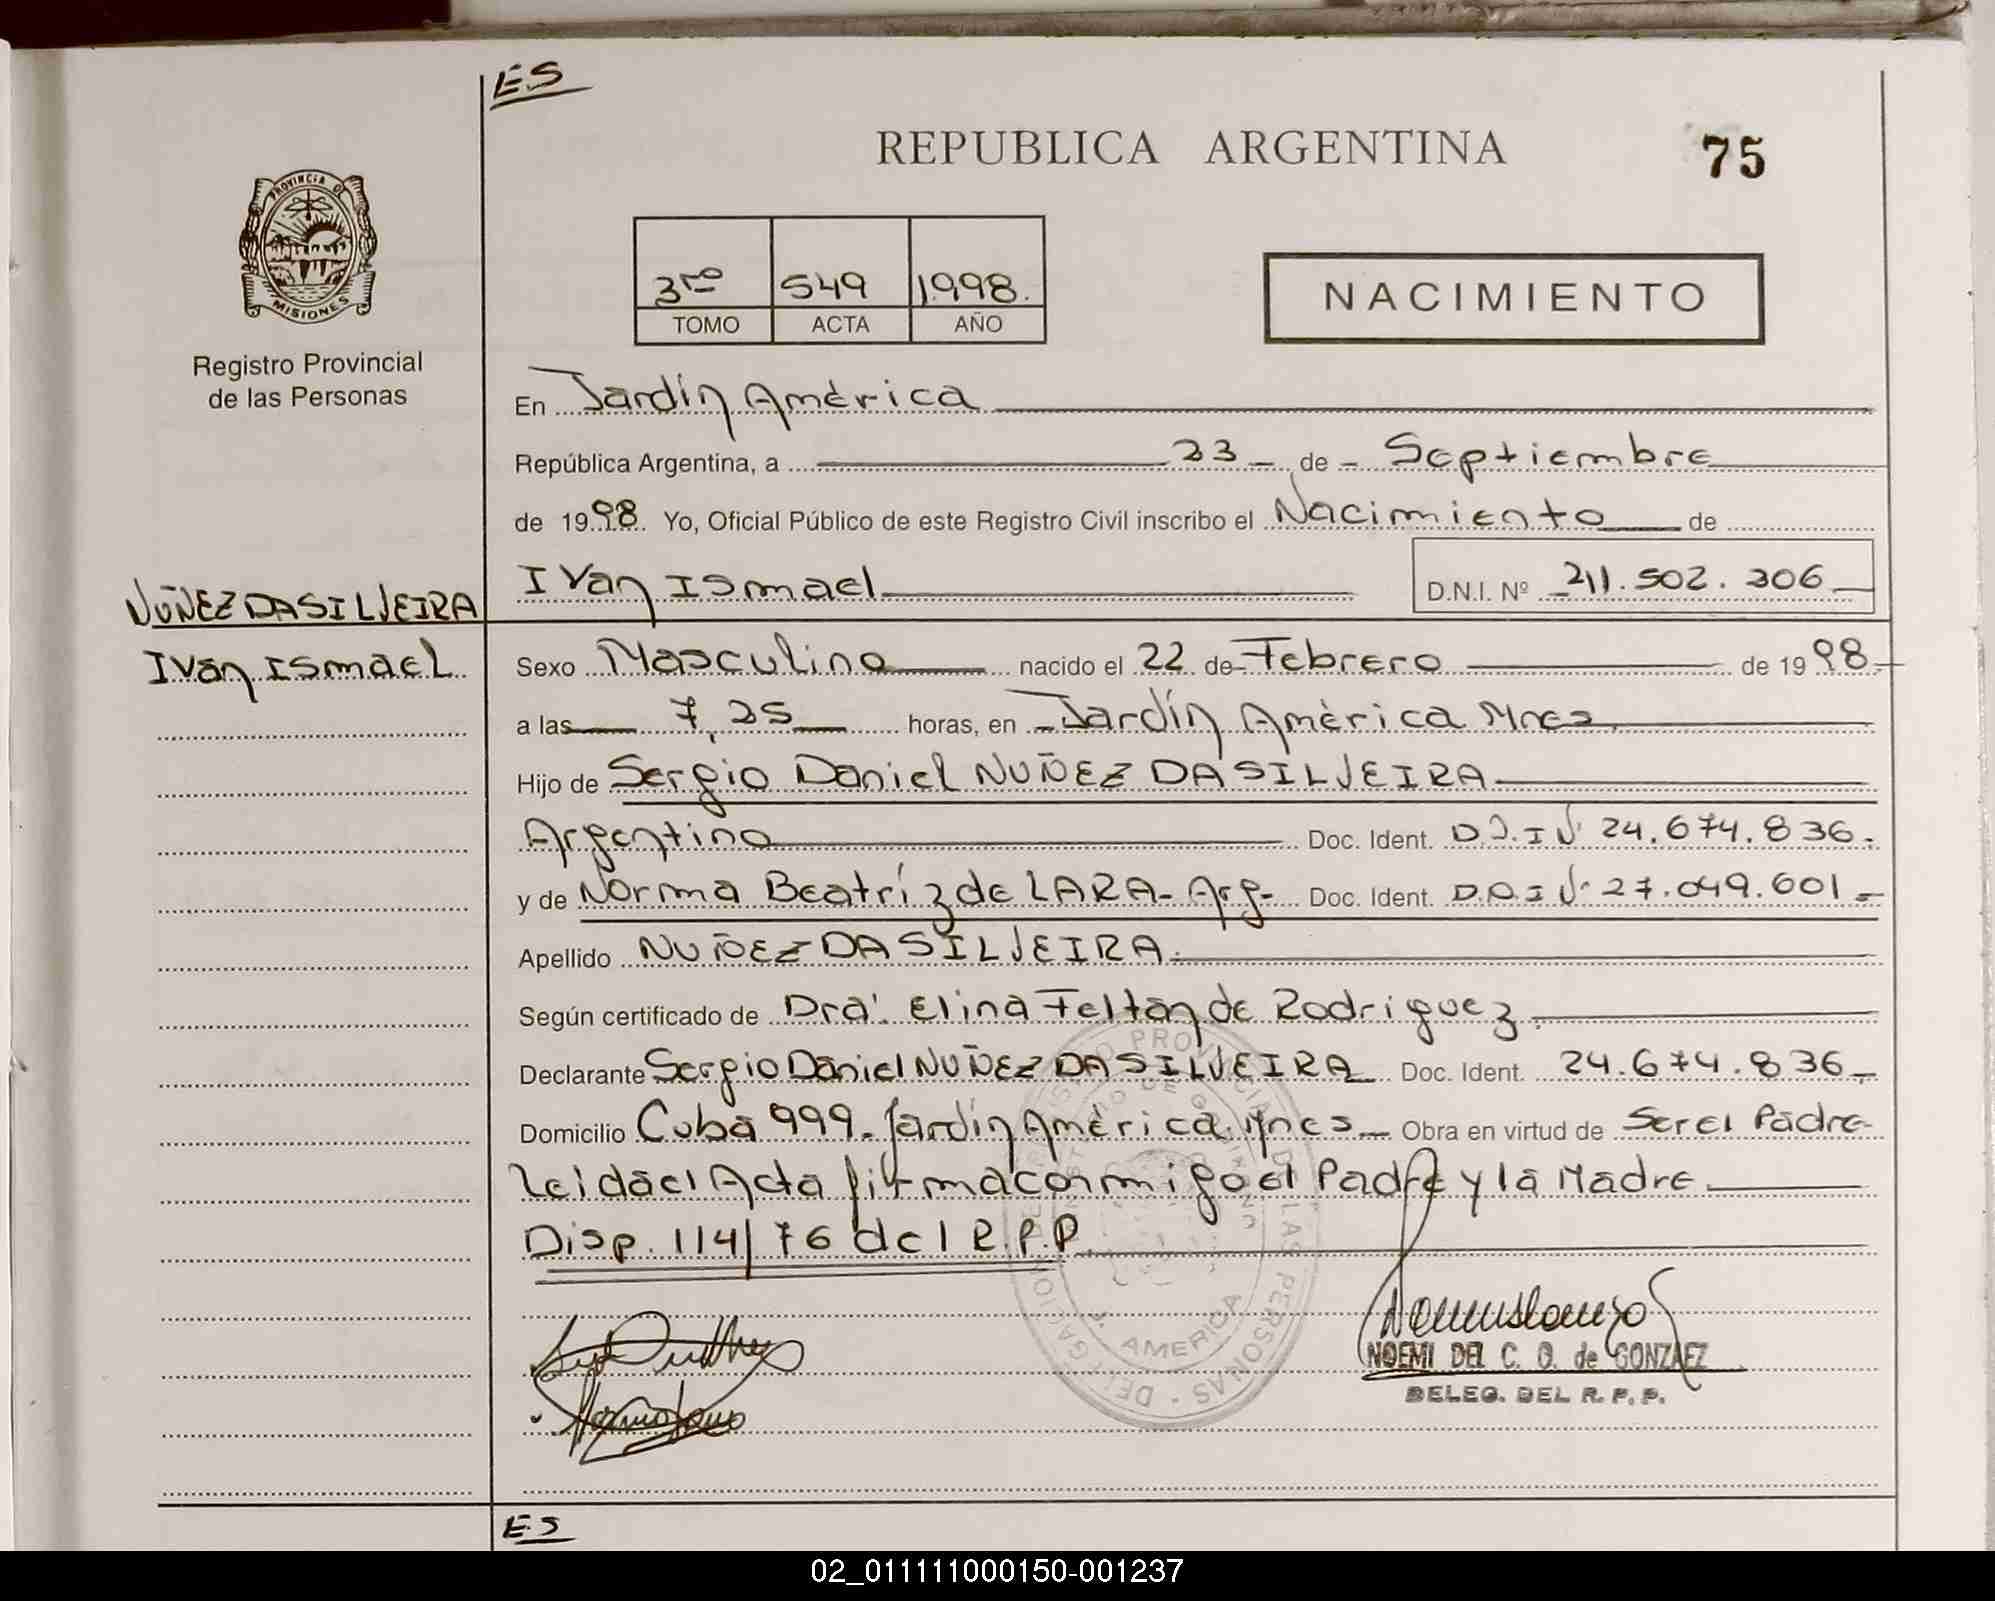 ES
REPUBLICA ARGENTINA
75
PROVINCIA DE
MISIONES
Registro Provincial
de las Personas
3ro 549 1998.
TOMO ACTA AÑO
NACIMIENTO
En Jardín América
República Argentina, a 23 de Septiembre
de 1998 Yo, Oficial Público de este Registro Civil inscribo el Nacimiento de
Ivan Ismael D.N.I. Nº 211.502.306
NUÑEZ DA SILVEIRA
Ivan Ismael
Sexo Masculino nacido el 22 de Febrero de 1998
a las 7,25 horas, en Jardín América Mnes
Hijo de Sergio Daniel NUÑEZ DA SILVEIRA
Argentino Doc. Ident. D.N.I Nº 24.674.836.
y de Norma Beatríz de LARA - Arg- Doc. Ident. D.N.I Nº 27.049.601.-
Apellido NUÑEZ DA SILVEIRA.
Según certificado de Dra. Elina Feltan de Rodriguez.
Declarante Sergio Daniel NUÑEZ DA SILVEIRA Doc. Ident. 24.674.836.-
Domicilio Cuba 999. Jardín América. Mnes Obra en virtud de Ser el Padre-
Leida el Acta firma conmigo el Padre y la Madre
Disp. 114/76 del R.P.P.
REGISTRO PROVINCIAL DE LAS PERSONAS - DELEGACION
MINISTERIO DE GOBIERNO
J. AMERICA
NOEMI DEL C. O. de GONZAEZ
DELEG. DEL R. P. P.
ES
02_011111000150-001237